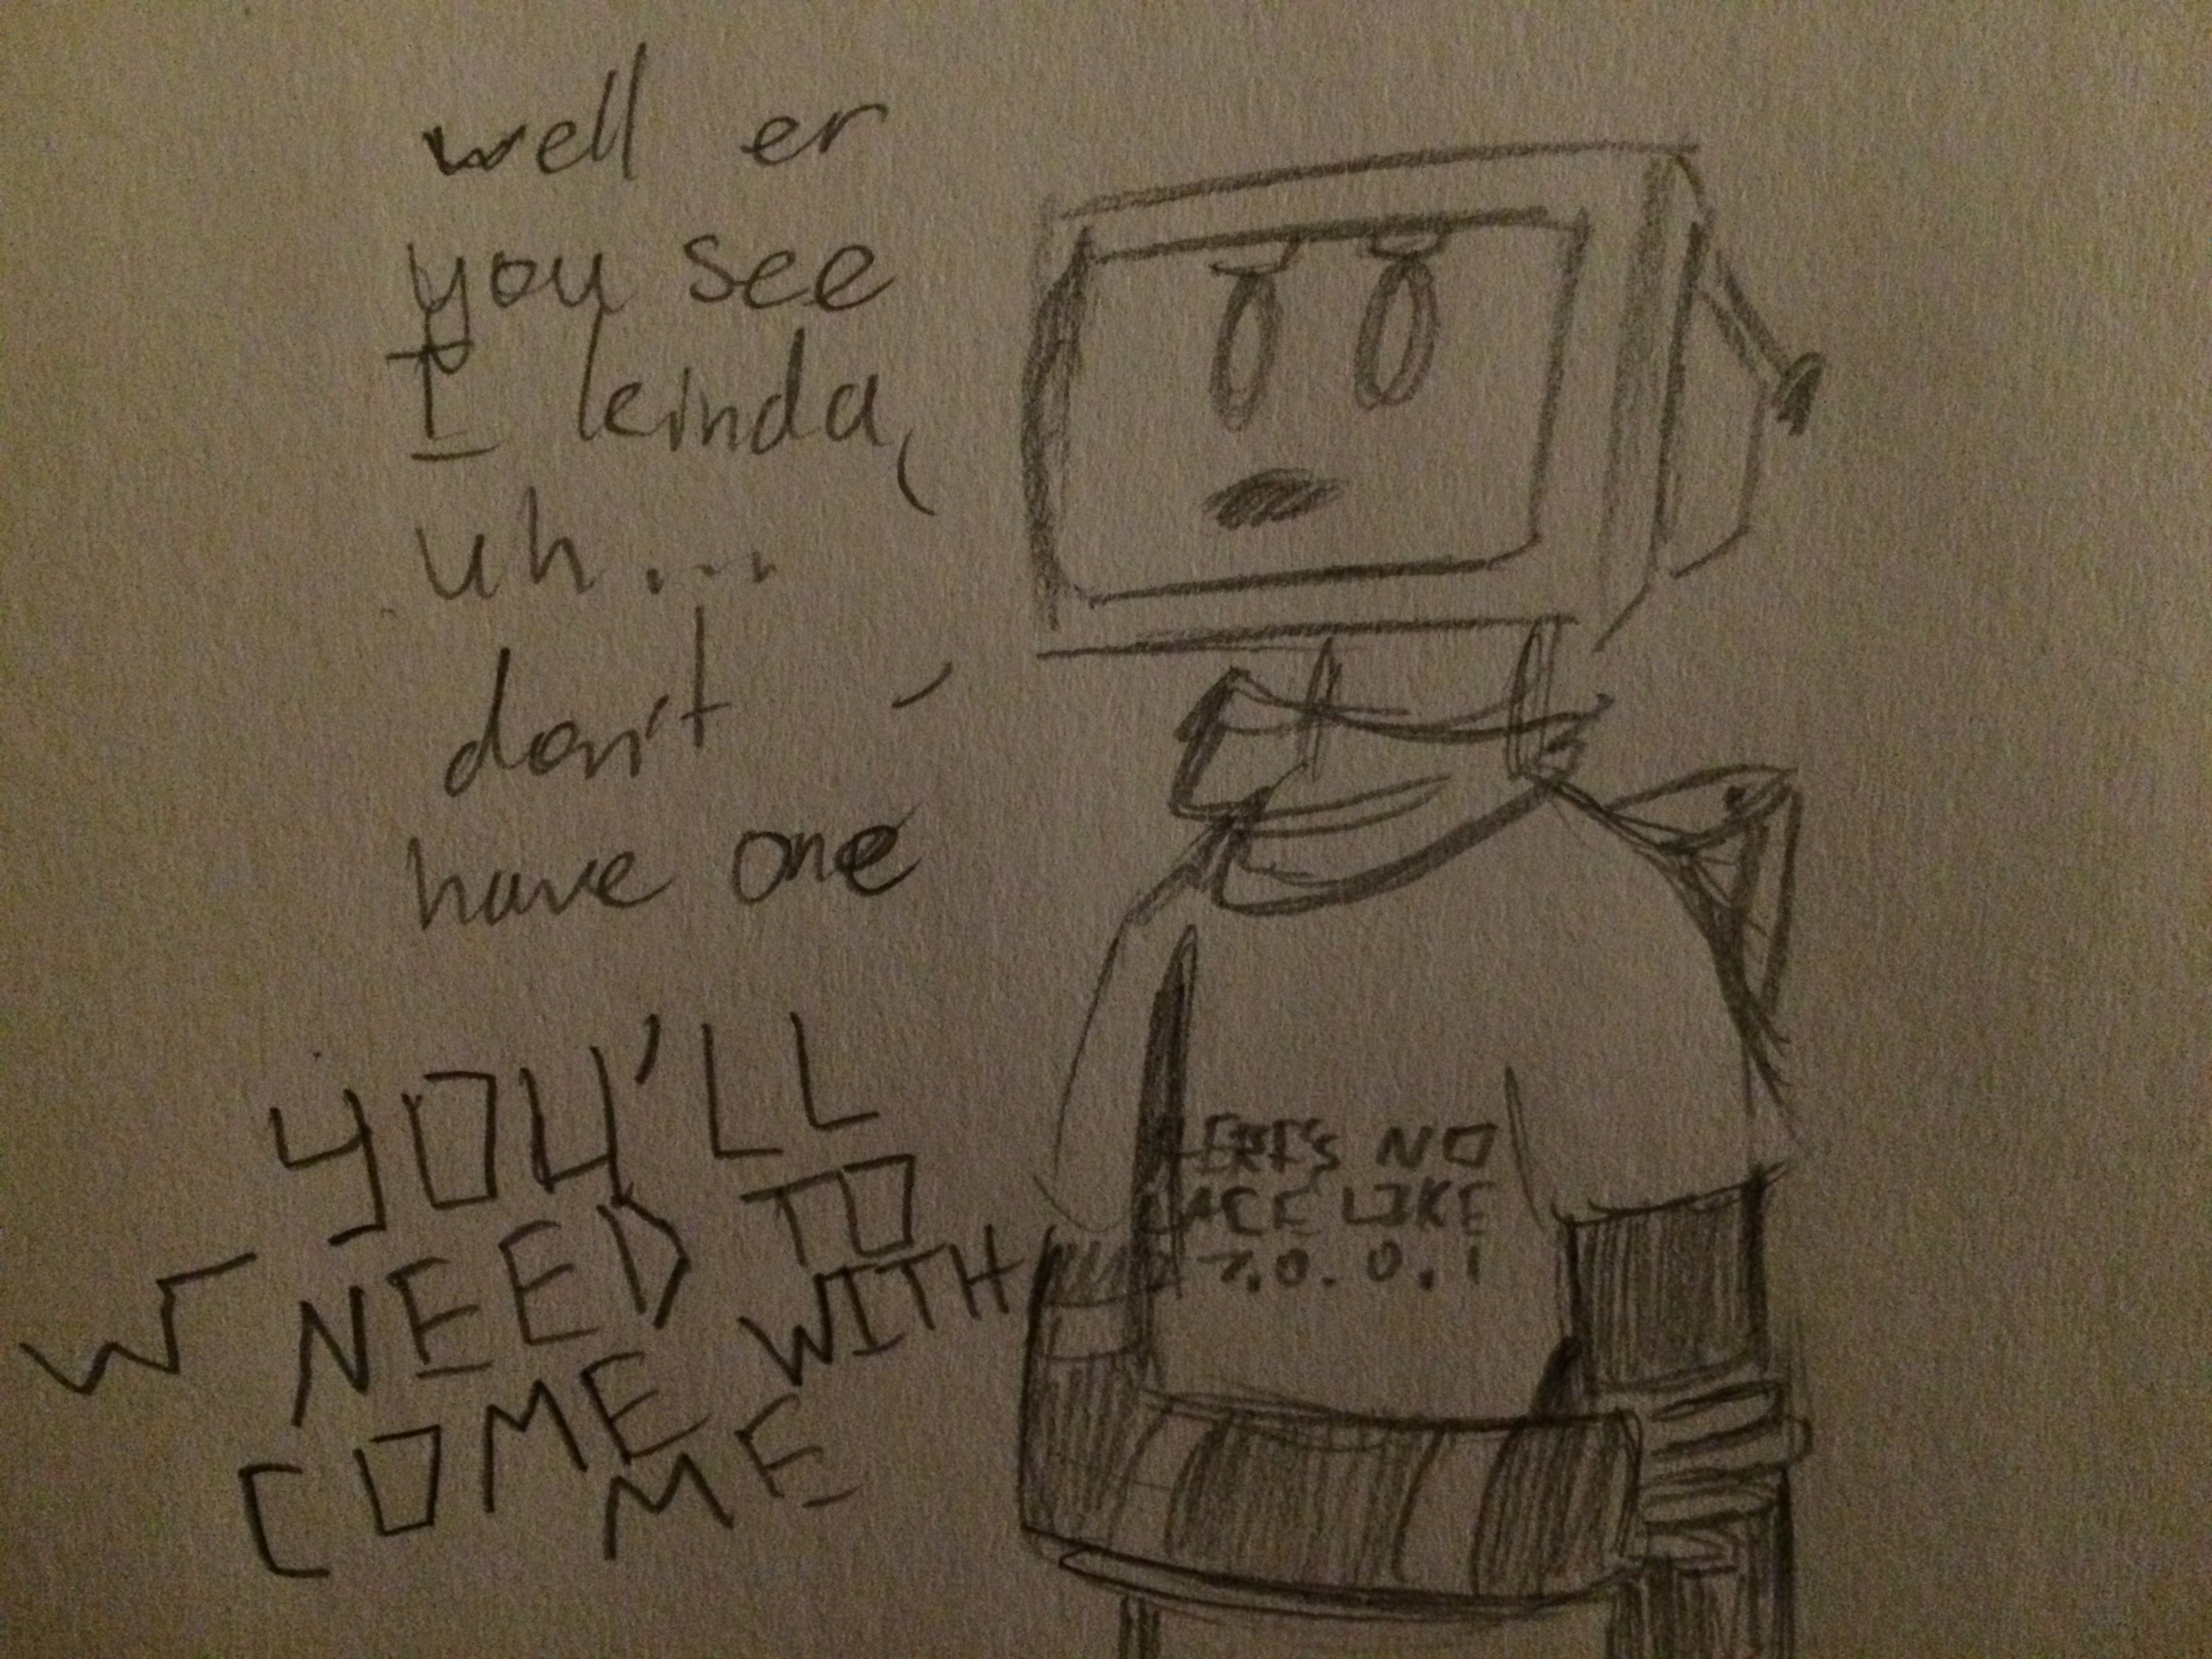 well er
you see
I kinda,
uh...
don't
have one
YOU'LL
NEED TO
COME WITH
ME
ERE'S NO
LACE LIKE
7.0.0.1